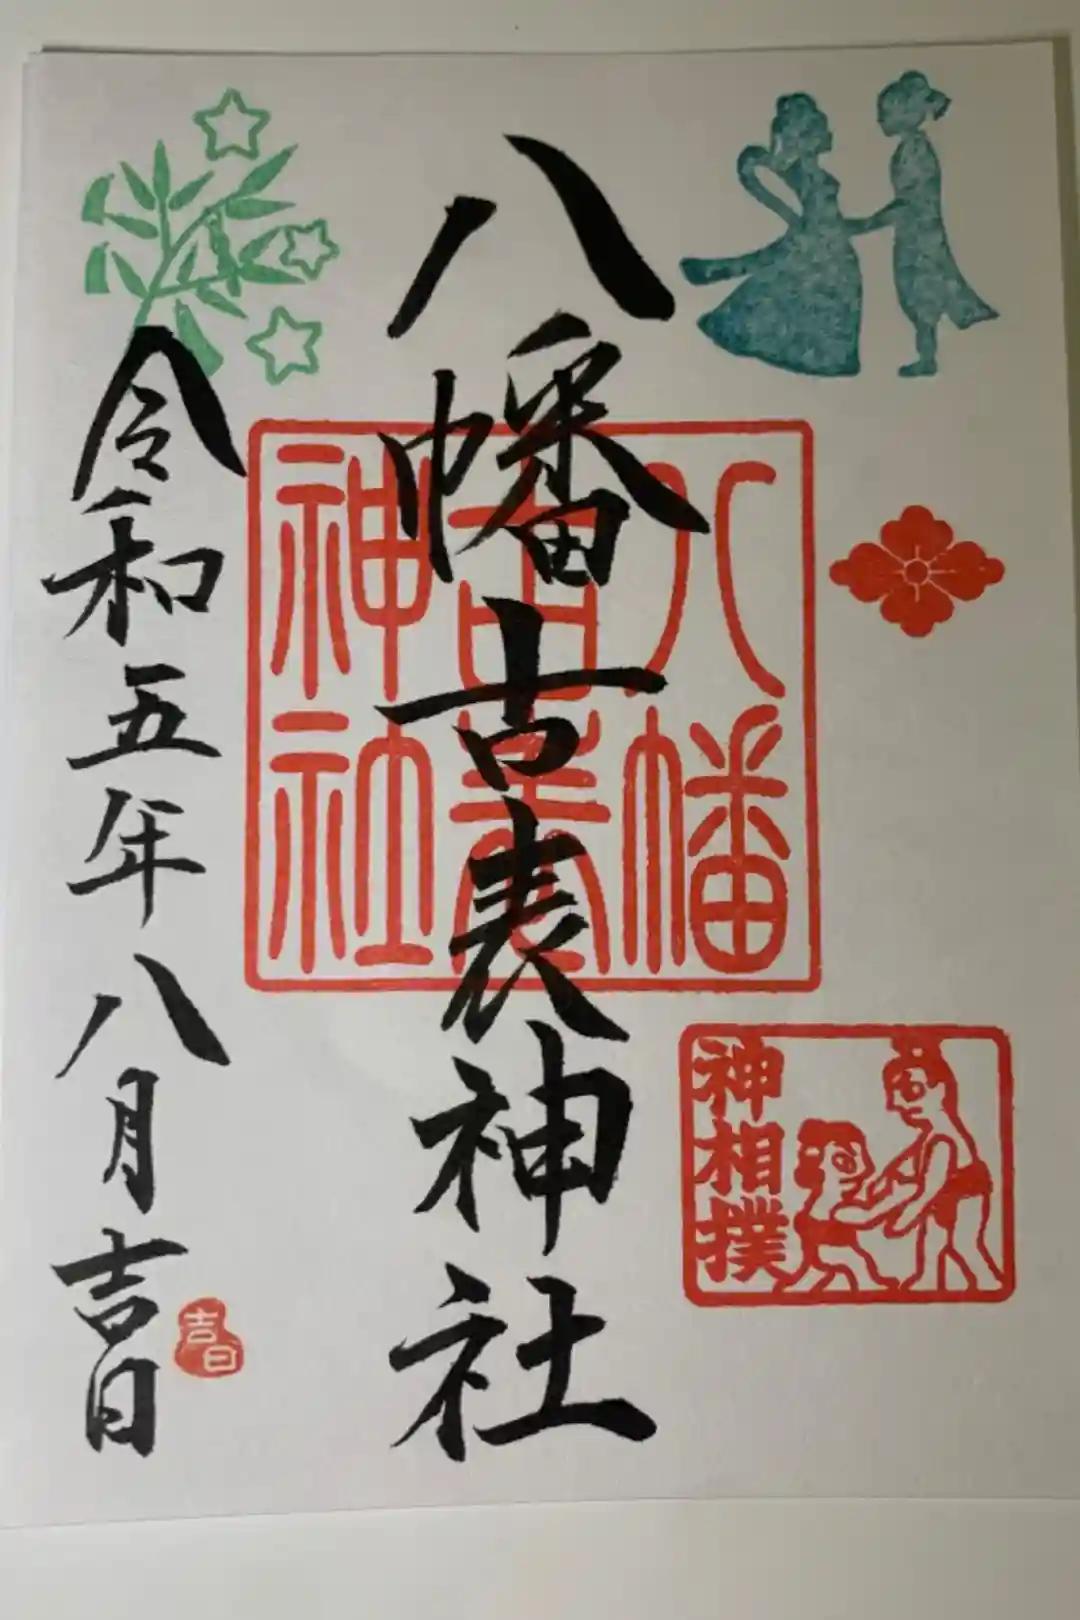 八幡古表神社
八幡
古表
神社
神相撲
令和五年八月吉日
吉日